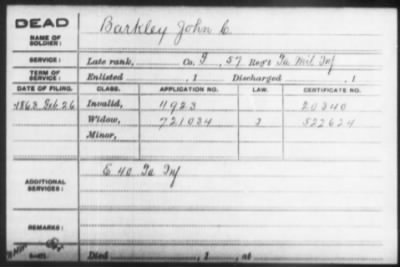 DEAD
NAME OF SOLDIER:
Barkley John C
SERVICE:
Late rank, Co. I, 57 Reg't Pa Mil Inf
TERM OF SERVICE:
Enlisted , 1 Discharged , 1
DATE OF FILING. CLASS. APPLICATION NO. LAW. CERTIFICATE NO.
1863 Feb 26 Invalid, 4923 20340
Widow, 721034 522624
Minor,
ADDITIONAL SERVICES:
E 40 Pa Inf
REMARKS:
Died , 1 , at